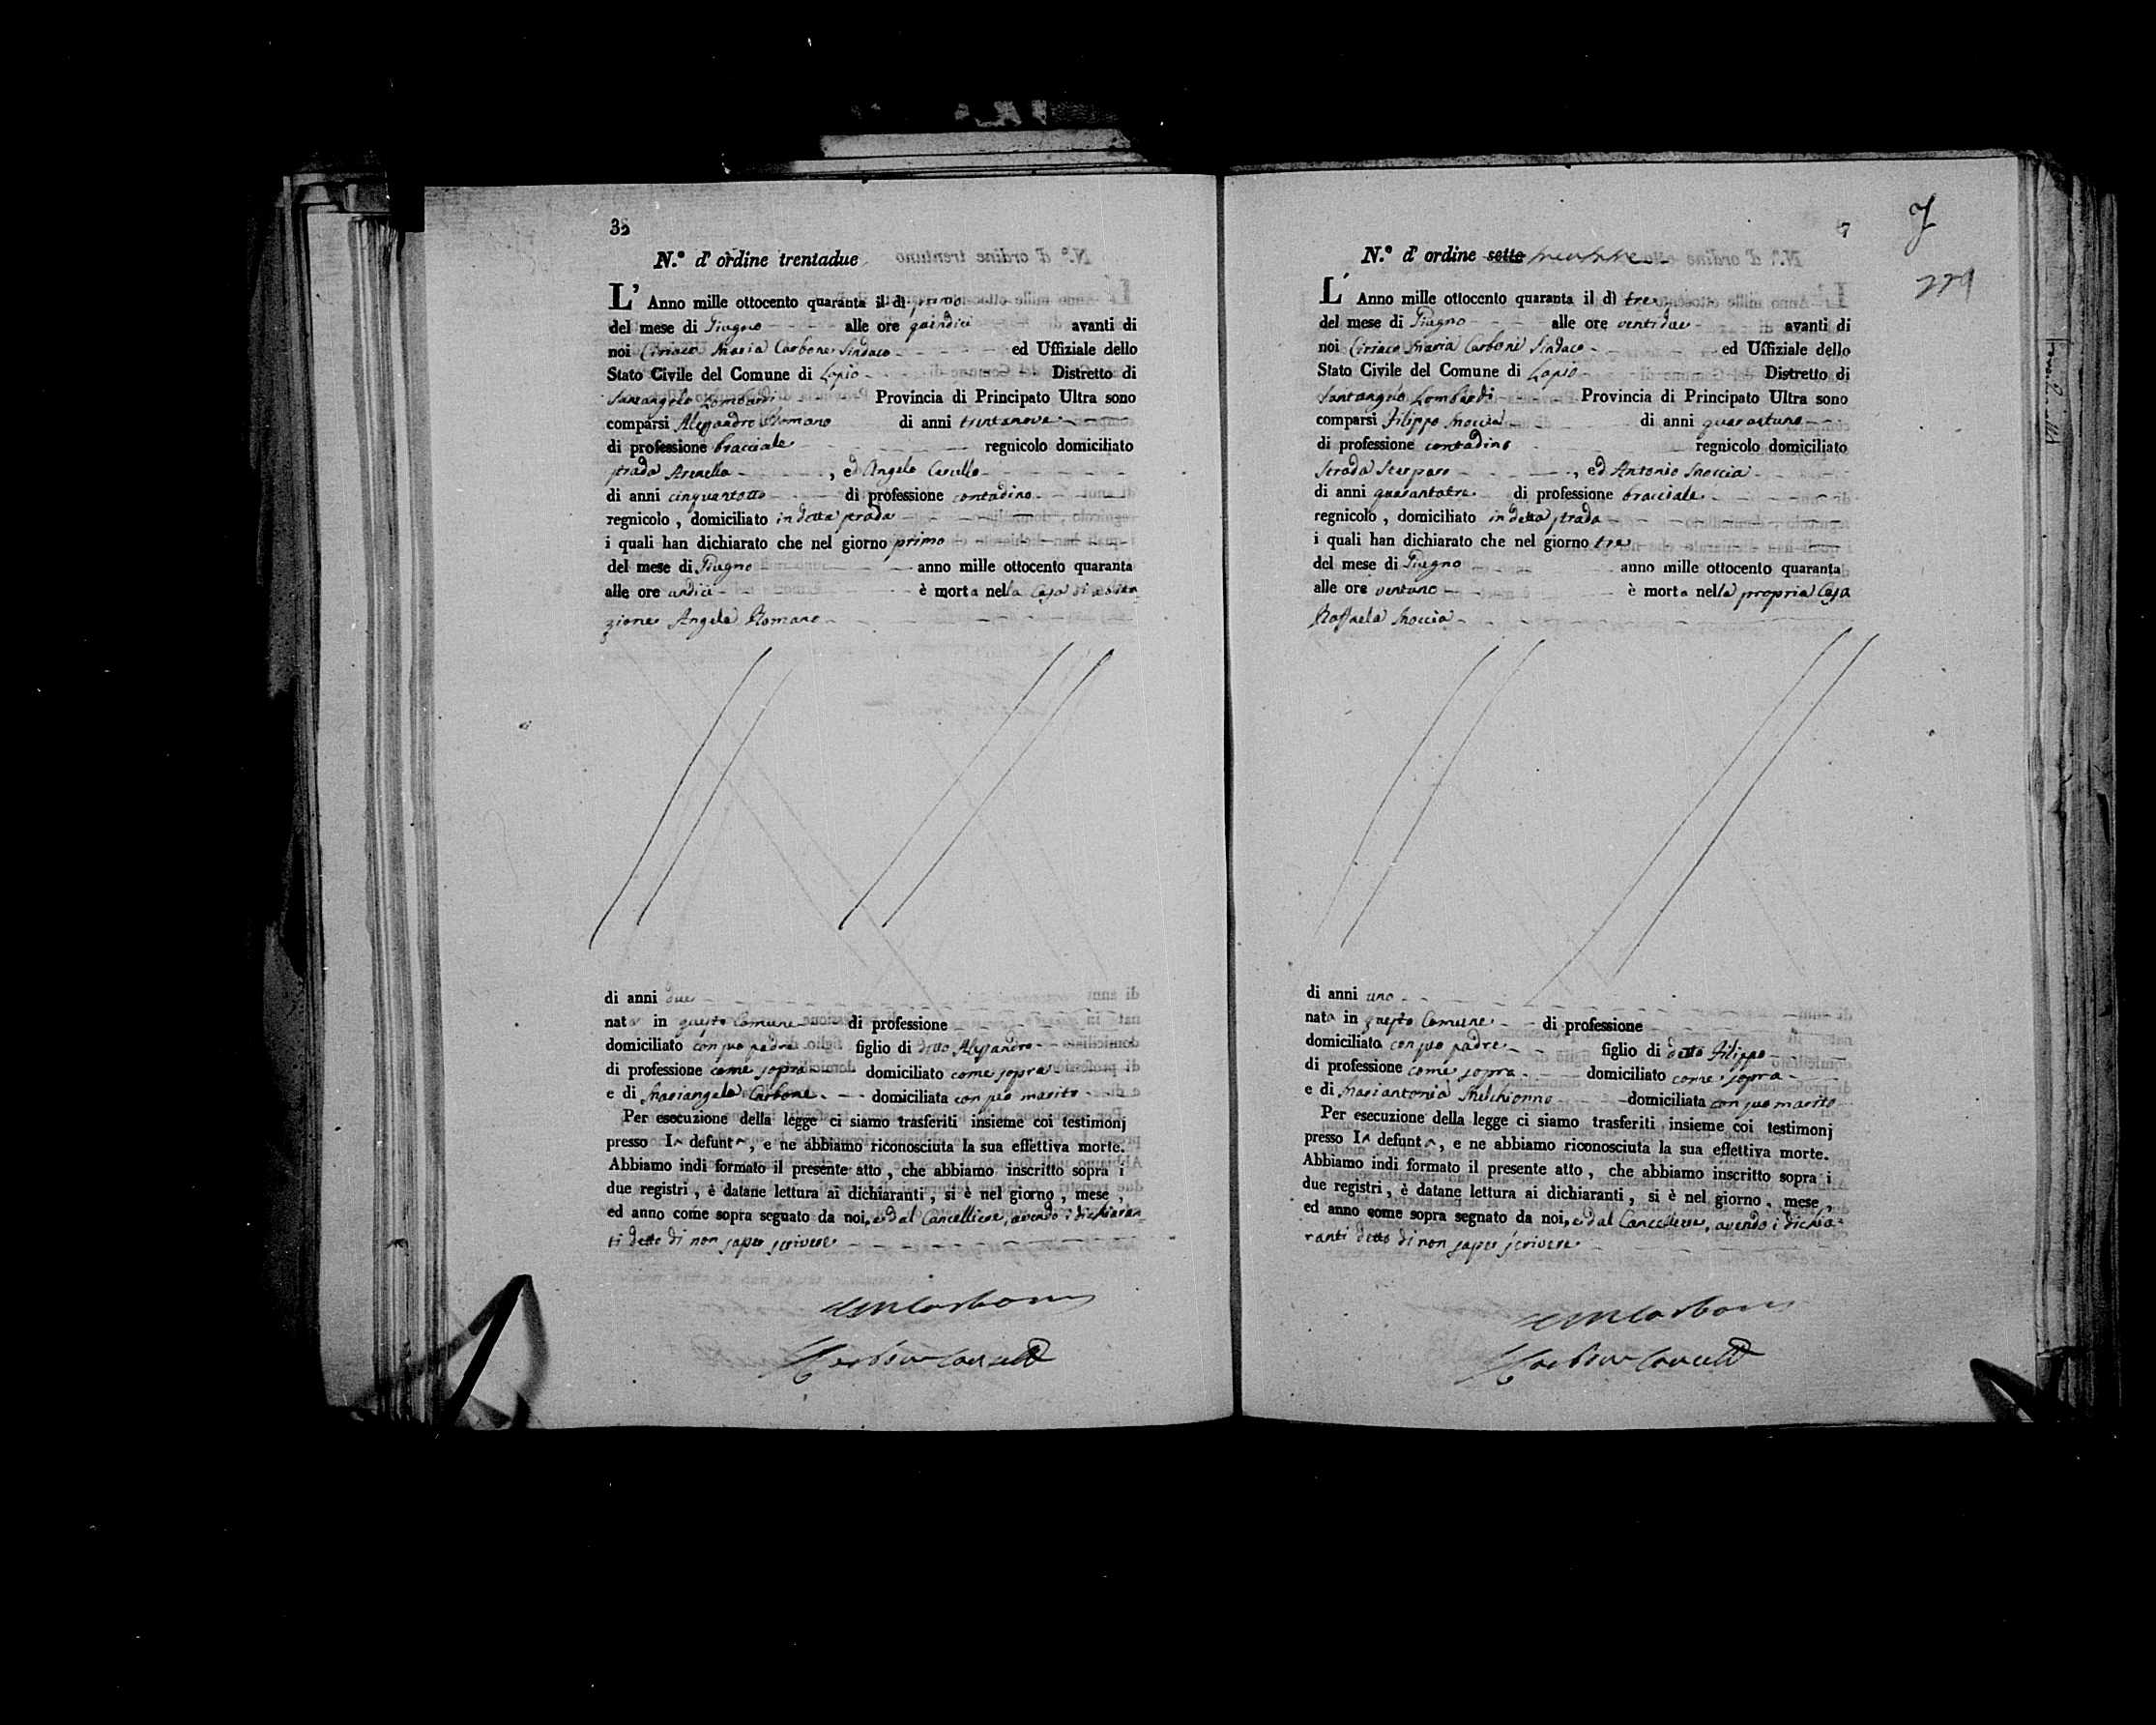 32
N.º d' ordine trentadue
L' Anno mille ottocento quaranta il dì primo
del mese di Giugno alle ore quindici avanti di
noi Ciriaco Maria Carbone Sindaco ed Uffiziale dello
Stato Civile del Comune di Lapio Distretto di
Santangelo Lombardi Provincia di Principato Ultra sono
comparsi Alessandro Romano di anni trentanove
di professione bracciale regnicolo domiciliato
strada Arenella , ed Angelo Carullo
di anni cinquantotto di professione contadino
regnicolo , domiciliato in detta strada
i quali han dichiarato che nel giorno primo
del mese di Giugno anno mille ottocento quaranta
alle ore undici è morta nella Casa di abita-
zione Angela Romano
di anni due
nata in questo Comune di professione
domiciliato con suo padre figlio di detto Alessandro
di professione come sopra domiciliato come sopra
e di Mariangela Carbone domiciliata con suo marito
Per esecuzione della legge ci siamo trasferiti insieme coi testimonj
presso la defunta , e ne abbiamo riconosciuta la sua effettiva morte.
Abbiamo indi formato il presente atto , che abbiamo inscritto sopra i
due registri , è datane lettura ai dichiaranti , si è nel giorno , mese ,
ed anno come sopra segnato da noi, e dal Cancelliere, avendo i dichiaran-
ti detto di non saper scrivere
7
N.º d' ordine sette
L' Anno mille ottocento quaranta il dì tre
del mese di Giugno alle ore ventidue avanti di
noi Ciriaco Maria Carbone Sindaco ed Uffiziale dello
Stato Civile del Comune di Lapio Distretto di
Santangelo Lombardi Provincia di Principato Ultra sono
comparsi Filippo Moccia di anni quarantuno
di professione contadino regnicolo domiciliato
Strada Sterparo , ed Antonio Moccia
di anni quarantatre di professione bracciale
regnicolo , domiciliato in detta strada
i quali han dichiarato che nel giorno tre
del mese di Giugno anno mille ottocento quaranta
alle ore ventuno è morta nella propria Casa
Raffaela Moccia
di anni uno
nata in questo Comune di professione
domiciliato con suo padre figlio di detto Filippo
di professione come sopra domiciliato come sopra
e di Mariantonia Melchionno domiciliata con suo marito
Per esecuzione della legge ci siamo trasferiti insieme coi testimonj
presso la defunta , e ne abbiamo riconosciuta la sua effettiva morte.
Abbiamo indi formato il presente atto , che abbiamo inscritto sopra i
due registri , è datane lettura ai dichiaranti , si è nel giorno , mese ,
ed anno come sopra segnato da noi, e dal Cancelliere, avendo i dichia-
ranti detto di non saper scrivere